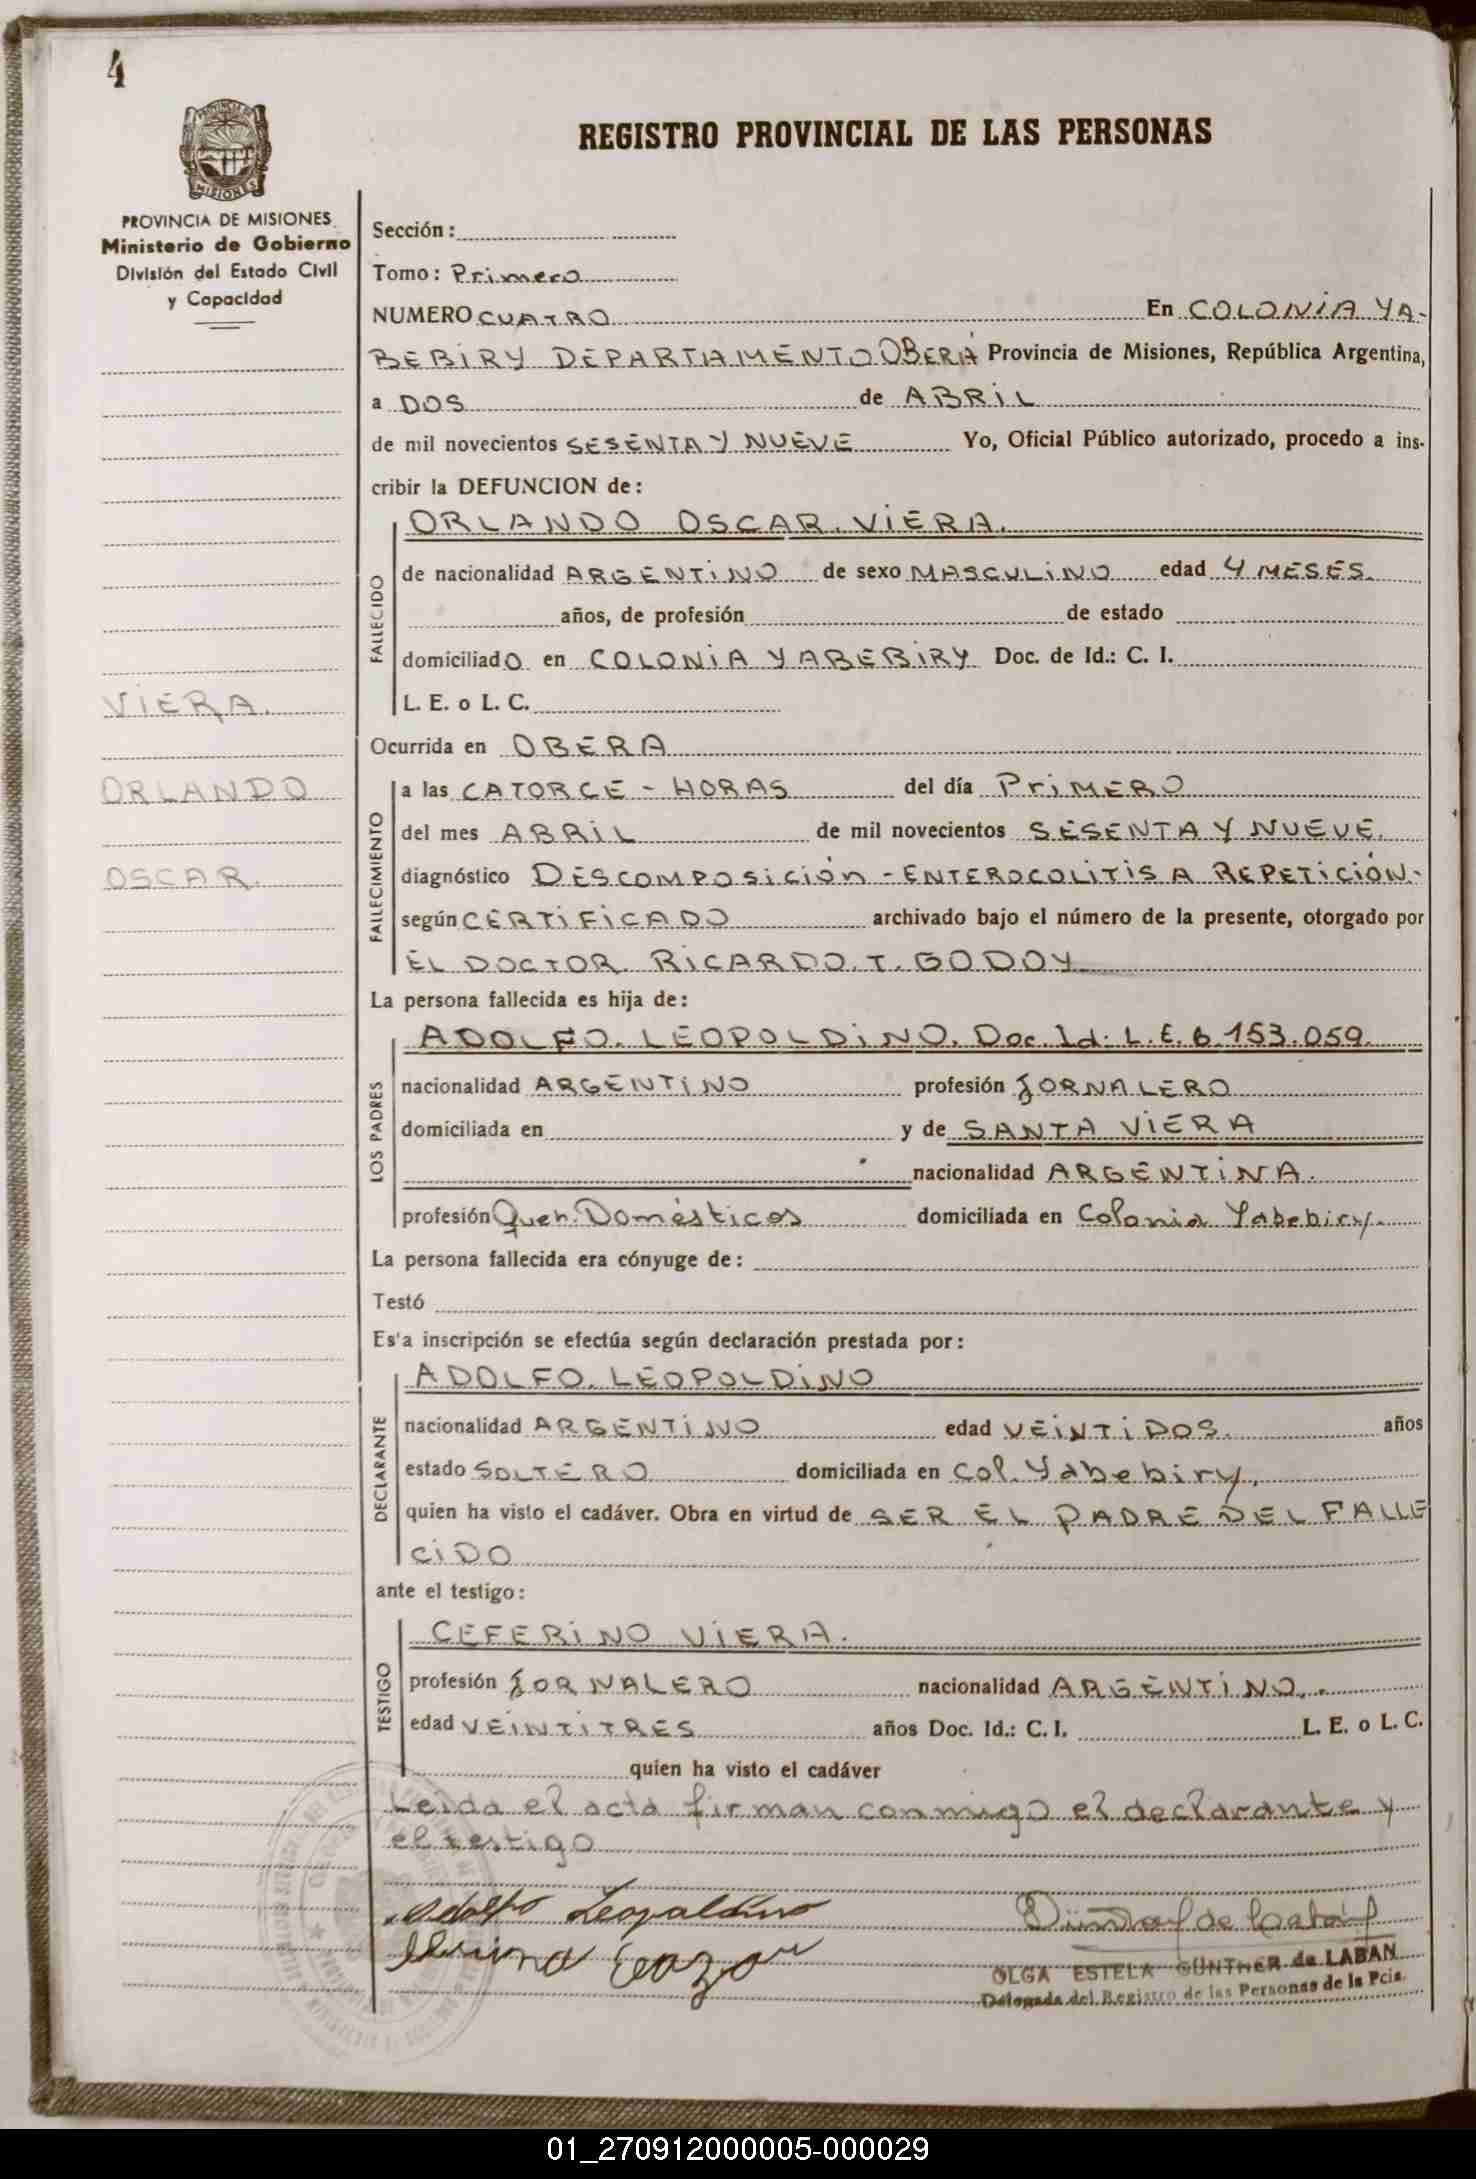 4
REGISTRO PROVINCIAL DE LAS PERSONAS
PROVINCIA DE MISIONES
Ministerio de Gobierno
División del Estado Civil
y Capacidad
Sección:
Tomo: Primero
NUMERO CUATRO En COLONIA YA-
BEBIRY DEPARTAMENTO OBERÁ Provincia de Misiones, República Argentina,
a DOS de ABRIL
de mil novecientos SESENTA Y NUEVE Yo, Oficial Público autorizado, procedo a ins-
cribir la DEFUNCION de:
ORLANDO OSCAR. VIERA.
FALLECIDO
de nacionalidad ARGENTINO de sexo MASCULINO edad 4 MESES.
años, de profesión de estado
domiciliado en COLONIA YABEBIRY Doc. de Id.: C. I.
L. E. o L. C.
VIERA.
ORLANDO
OSCAR.
Ocurrida en OBERA
FALLECIMIENTO
a las CATORCE - HORAS del día PRIMERO
del mes ABRIL de mil novecientos SESENTA Y NUEVE.
diagnóstico DESCOMPOSICIÓN - ENTEROCOLITIS A REPETICIÓN.-
según CERTIFICADO archivado bajo el número de la presente, otorgado por
EL DOCTOR. RICARDO. T. GODOY
La persona fallecida es hija de:
LOS PADRES
ADOLFO. LEOPOLDINO. Doc. Id: L.E. 6.153.059.
nacionalidad ARGENTINO profesión JORNALERO
domiciliada en y de SANTA VIERA
nacionalidad ARGENTINA.
profesión Queh. Domésticos domiciliada en Colonia Yabebiry.
La persona fallecida era cónyuge de:
Testó
Es'a inscripción se efectúa según declaración prestada por:
DECLARANTE
ADOLFO. LEOPOLDINO
nacionalidad ARGENTINO edad VEINTIDOS. años
estado SOLTERO domiciliada en Col. Yabebiry,
quien ha visto el cadáver. Obra en virtud de SER EL PADRE DEL FALLE
CIDO
ante el testigo:
TESTIGO
CEFERINO VIERA.
profesión JORNALERO nacionalidad ARGENTINO.
edad VEINTITRES años Doc. Id.: C. I. L. E. o L. C.
quien ha visto el cadáver
Leida el acta firman conmigo el declarante y
el testigo
Adolfo Leopoldino
OLGA ESTELA GUNTNER de LABAN
Delegada del Registro de las Personas de la Pcia.
01_270912000005-000029